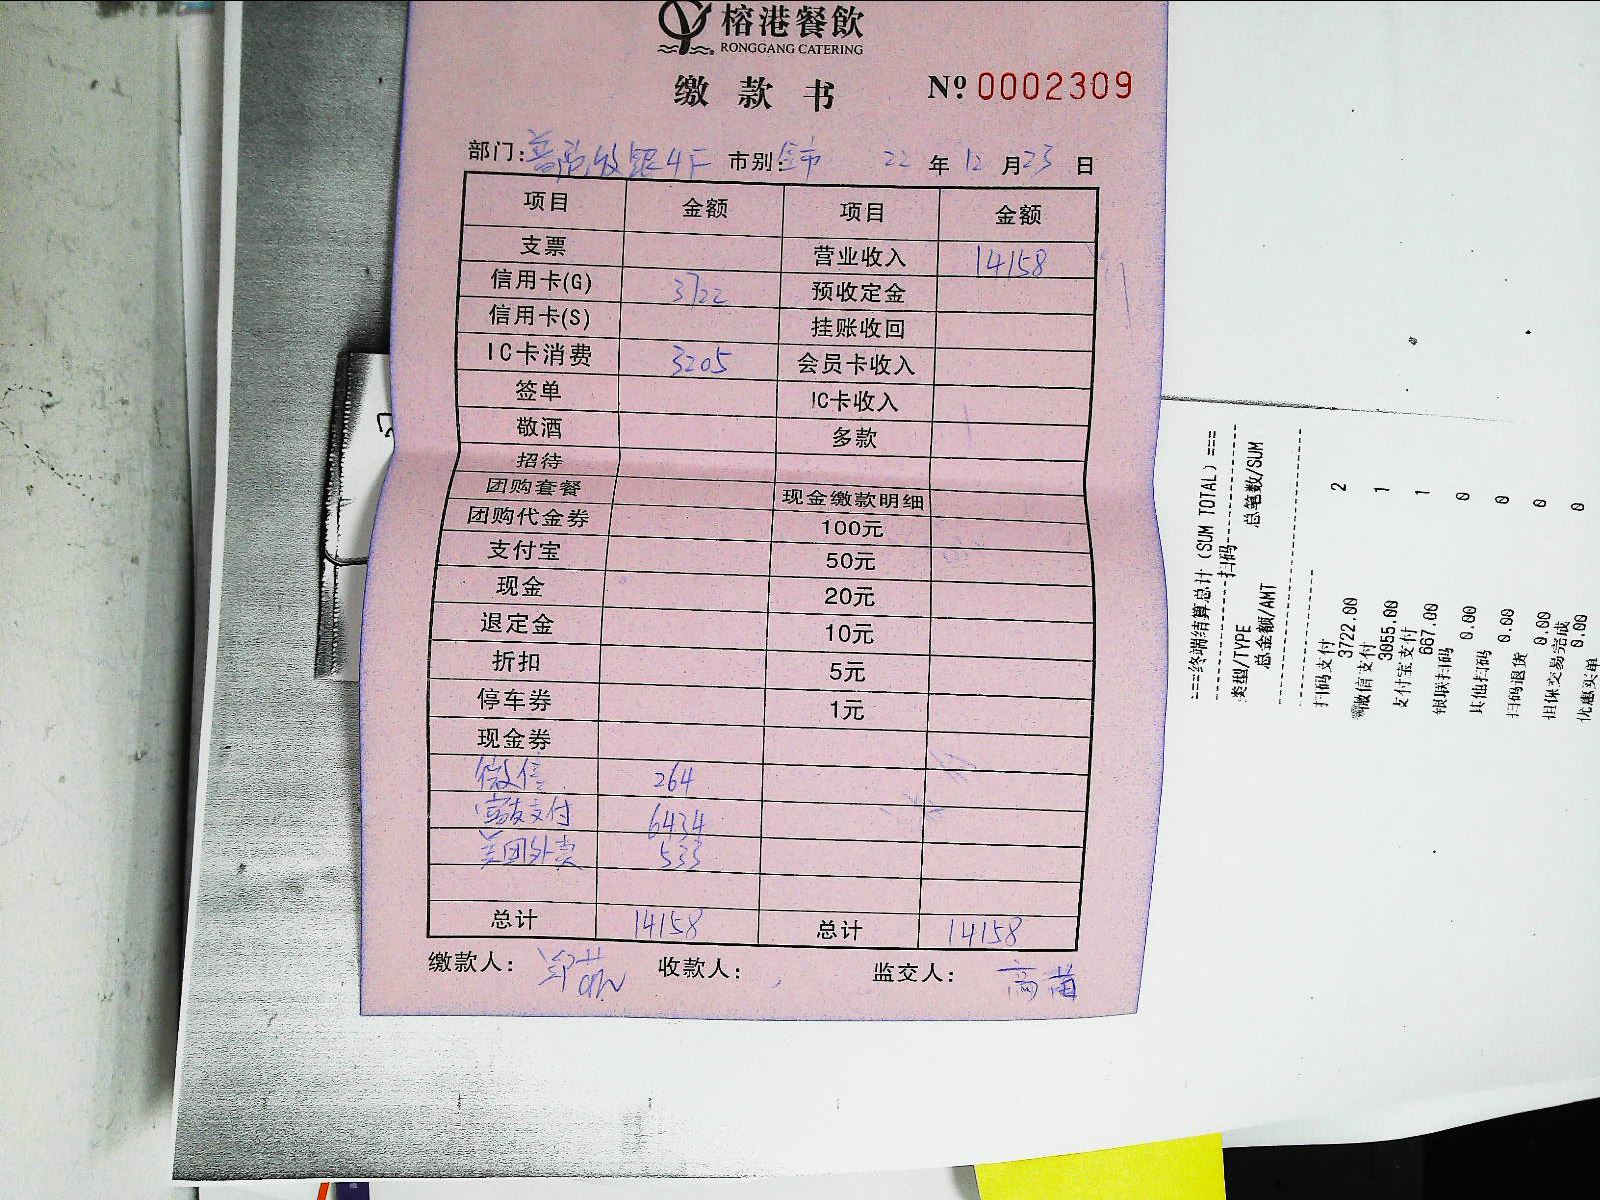 榕港餐飲
RONGGANG CATERING
缴款书 № 0002309
部门: 4F 市别: 全市 22 年 12 月 23 日
项目 金额 项目 金额
支票 营业收入 14158
信用卡(G) 3722 预收定金
信用卡(S) 挂账收回
IC卡消费 3205 会员卡收入
签单 IC卡收入
敬酒 多款
招待
团购套餐 现金缴款明细
团购代金券 100元
支付宝 50元
现金 20元
退定金 10元
折扣 5元
停车券 1元
现金券
微信 264
支付 6434
美团外卖 533
总计 14158 总计 14158
缴款人: 收款人: 监交人: 高苗
===终端结算总计(SUM TOTAL)===
扫码
类型/TYPE 总笔数/SUM
总金额/AMT
扫码支付 2
3722.00
微信支付 1
3055.00
支付宝支付 1
667.00
银联扫码 0
0.00
其他扫码 0
0.00
扫码退货 0
0.00
担保交易完成 0
0.00
优惠买单